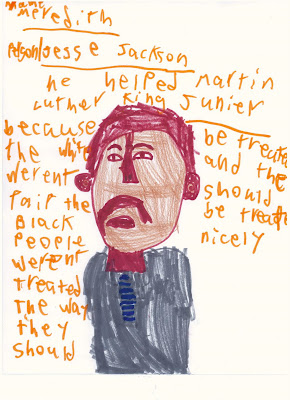 Name
Meredith
Person Jesse Jackson
he helped Martin
Luther King Junier
because
the white
werent
fair the
Black
People
werent
treated
the way
they
should
be treate
and the
should
be treate
nicely